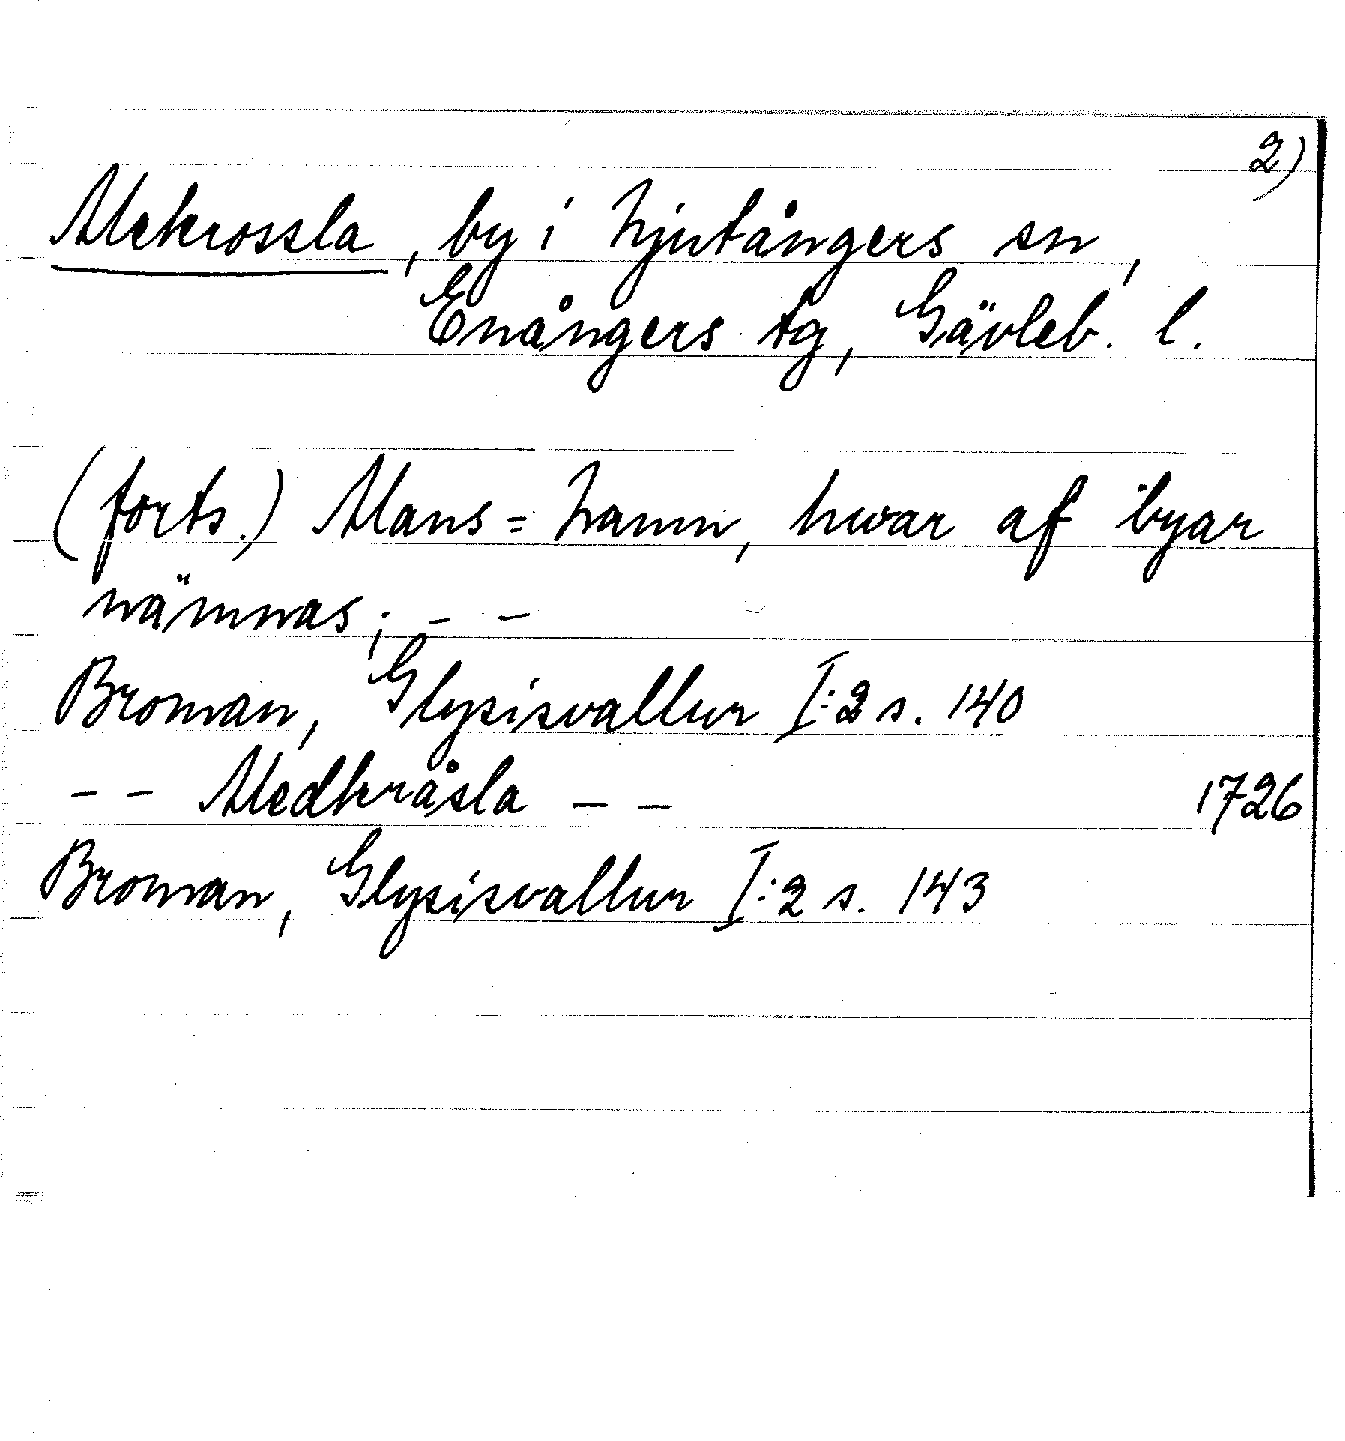 2)
Mekrossla, by i Njutångers sn,
Enångers tg, Gävleb. l.
(forts.) Mans=namn, hwar af byar
nämnas; - -
Broman, Glysisvallur I:2 s. 140
- - Medkråsla - - 1726
Broman, Glysisvallur I:2 s. 143